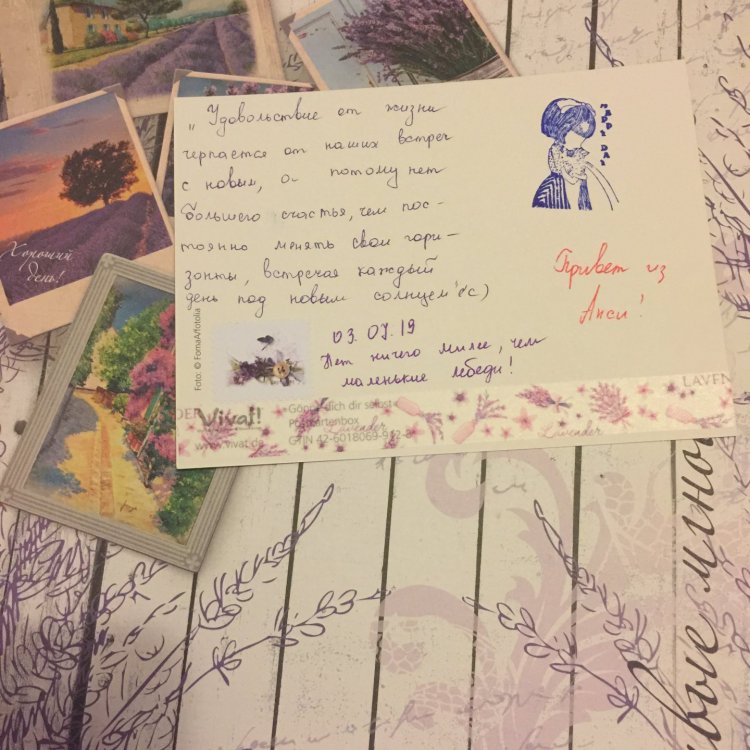 „Удовольствие от жизни
черпается от наших встреч
с новым, а потому нет
большего счастья, чем пос-
тоянно менять свои гори-
зонты, встречая каждый
день под новым солнцем"
HAPPY DAY
Привет из
Анси!
03.07.19
Нет ничего милее, чем
маленькие лебеди!
Foto: © FomaA/fotolia
Vivat!
www.vivat.de
Gönn dich dir selbst
Postkartenbox
GTIN 42-6018069-912-8
Lavender
Lavender
LAVEN
DER
Хороший
день!